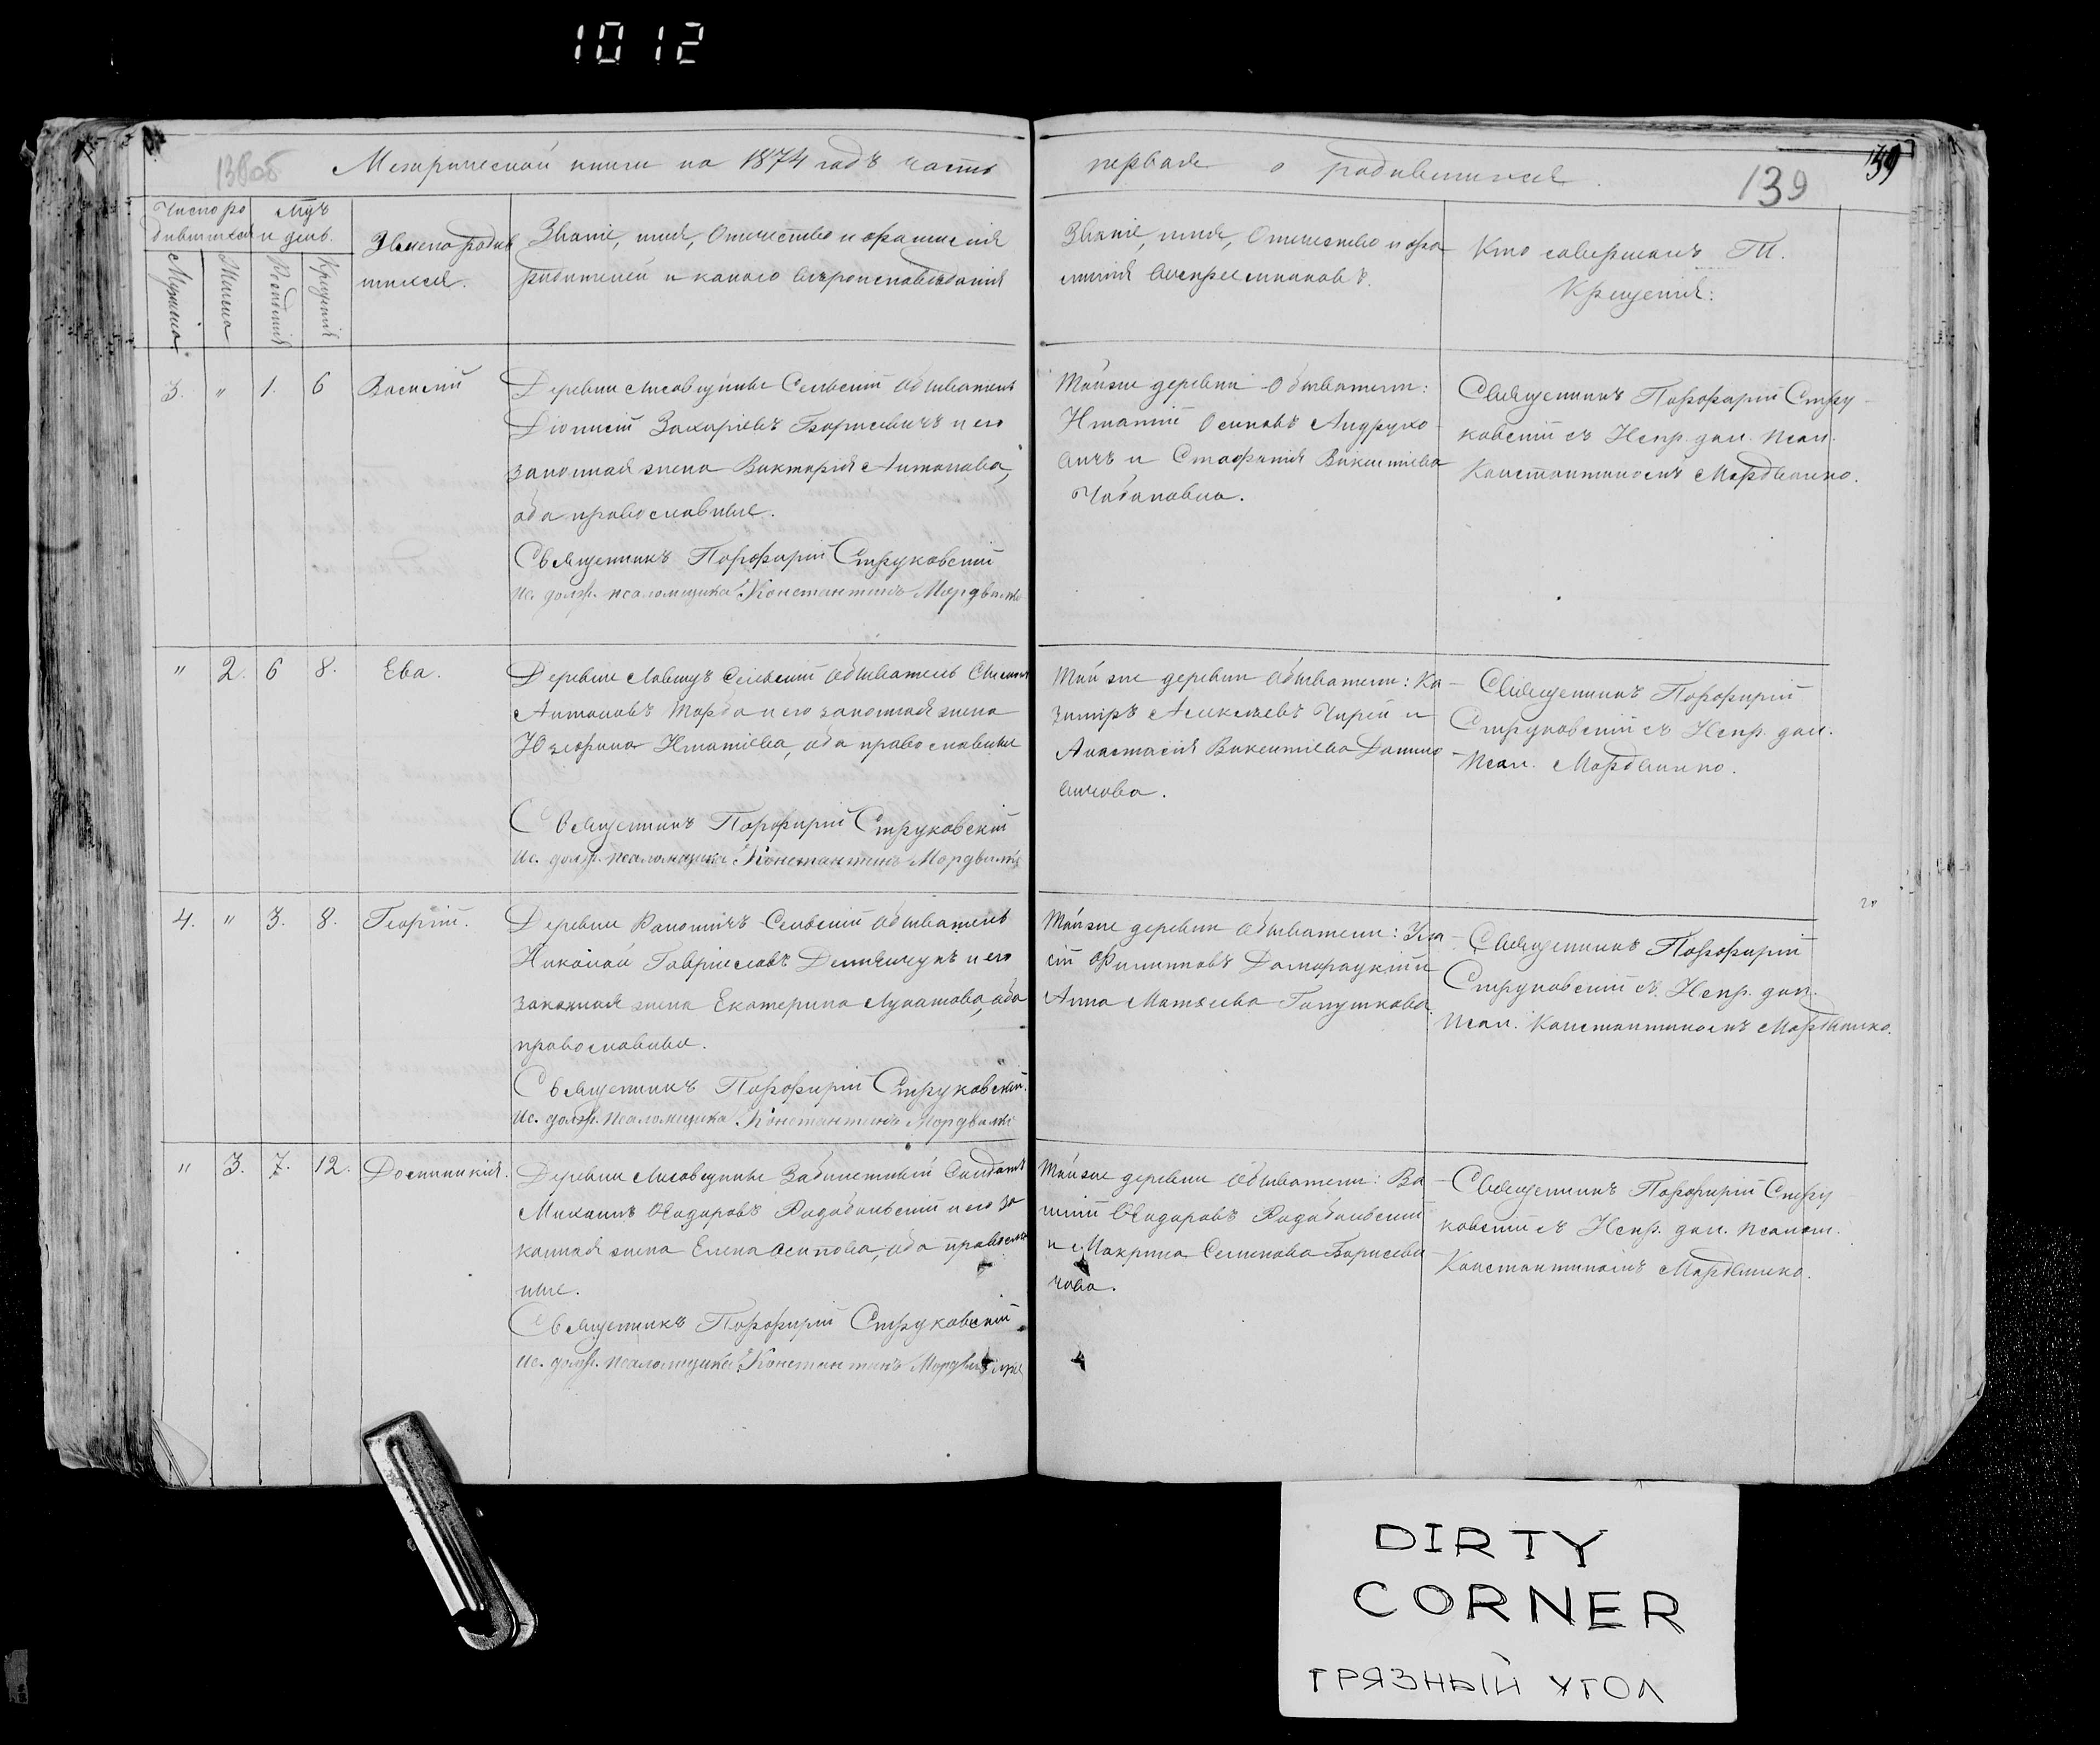 1012
138об
Метрической книги на 1874 годъ часть
первая о родившихся.
139
139
Число ро
дившихся
Муж. и дни.
Мужска
Женска
Рожденія
Крещенія
Имена родив
шихся.
Званіе, имя, отчество и фамилія
родителей и какого вѣроисповѣданія
Званіе, имя, отчество и фа
милія воспріемниковъ.
Кто совершалъ Т.
Крещенія:
3. " 1. 6 Василій
Деревни Лисовщины Сельскій обыватель
Діонисій Захаріевъ Борисевичъ и его
законная жена Викторія Антонова,
оба православные.
Священникъ Порфирій Струковскій
Ис. долж. псаломщика Константинъ Мордвилко
Тойже деревни обыватели:
Игнатій Осиповъ Андруко
вичъ и Стефанія Викентіева
Чабановна.
Священникъ Порфирій Стру
ковскій съ Испр. дол. псал.
Константиномъ Мордвилко.
" 2. 6 8. Ева.
Деревни Сельскій обыватель
Антоновъ и его законная жена
Юзефина Игнатіева, оба православные
Священникъ Порфирій Струковскій
Ис. долж. псаломщика Константинъ Мордвилко
Тойже деревни обыватели: Ка
зиміръ Алексѣевъ Чирей и
Анастасія Викентіева Данило
вичова.
Священникъ Порфирій
Струковскій съ Испр. дол.
псал. Мордвилко.
4. " 3. 8. Георгій.
Деревни Сельскій обыватель
Николай Гавріиловъ и его
законная жена Екатерина Лукашова, оба
православные.
Священникъ Порфирій Струковскій.
Ис. долж. псаломщика Константинъ Мордвилко
Тойже деревни обыватели:
Филипповъ Домарацкій и
Анна Матѳеева Галушкова.
Священникъ Порфирій
Струковскій съ Испр. дол.
псал. Константиномъ Мордвилко.
" 3. 7. 12. Домникія.
Деревни Лисовщины Забилетный Солдатъ
Михаилъ Ѳеодоровъ и его за
конная жена Елена Осипова, оба православ
ные.
Священникъ Порфирій Струковскій
Ис. долж. псаломщика Константинъ Мордвилко
Тойже деревни обыватели: Ва
силій Ѳеодоровъ
и Макрина Семенова Борисеви
чова.
Священникъ Порфирій Стру
ковскій съ Испр. дол. псалом.
Константиномъ Мордвилко.
DIRTY
CORNER
ГРЯЗНЫЙ УГОЛ